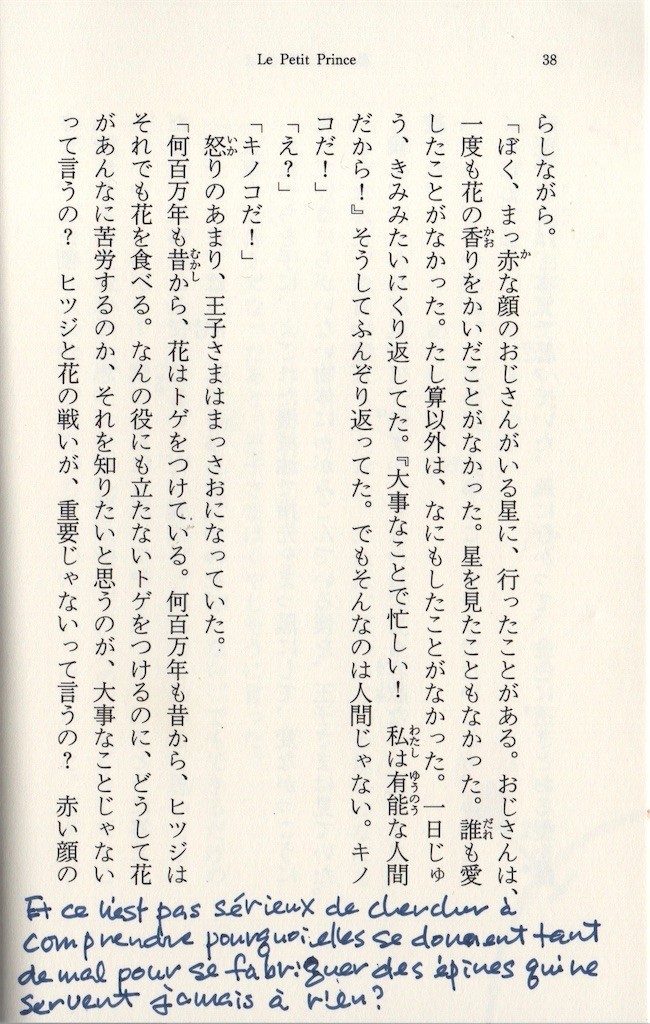 Le Petit Prince
38
らしながら。
「ぼく、まっ赤な顔のおじさんがいる星に、行ったことがある。おじさんは、
一度も花の香りをかいだことがなかった。星を見たこともなかった。誰も愛
したことがなかった。たし算以外は、なにもしたことがなかった。一日じゅ
う、きみみたいにくり返してた。『大事なことで忙しい！　私は有能な人間
だから！』そうしてふんぞり返ってた。でもそんなのは人間じゃない。キノ
コだ！」
「え？」
「キノコだ！」
怒りのあまり、王子さまはまっさおになっていた。
「何百万年も昔から、花はトゲをつけている。何百万年も昔から、ヒツジは
それでも花を食べる。なんの役にも立たないトゲをつけるのに、どうして花
があんなに苦労するのか、それを知りたいと思うのが、大事なことじゃない
って言うの？　ヒツジと花の戦いが、重要じゃないって言うの？　赤い顔の
Et ce n'est pas sérieux de chercher à
comprendre pourquoi elles se donnent tant
de mal pour se fabriquer des épines qui ne
servent jamais à rien?